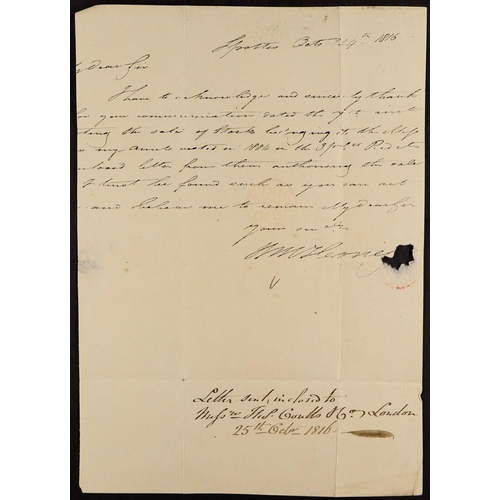 Spottes Octr 24th 1816
My Dear Sir
I have to acknowledge and sincerely thank
for your communication dated the 7th inst
the sale of Stock belonging to the Miss
my Aunts in the 3 pr Ct Red
letter from them authorising the sale
I trust be found such as you can act
and believe me to remain My Dear Sir
Yours
Wm
Letter sent, inclosed to
Messrs Thos. Coutts & Co. London
25th Octr 1816